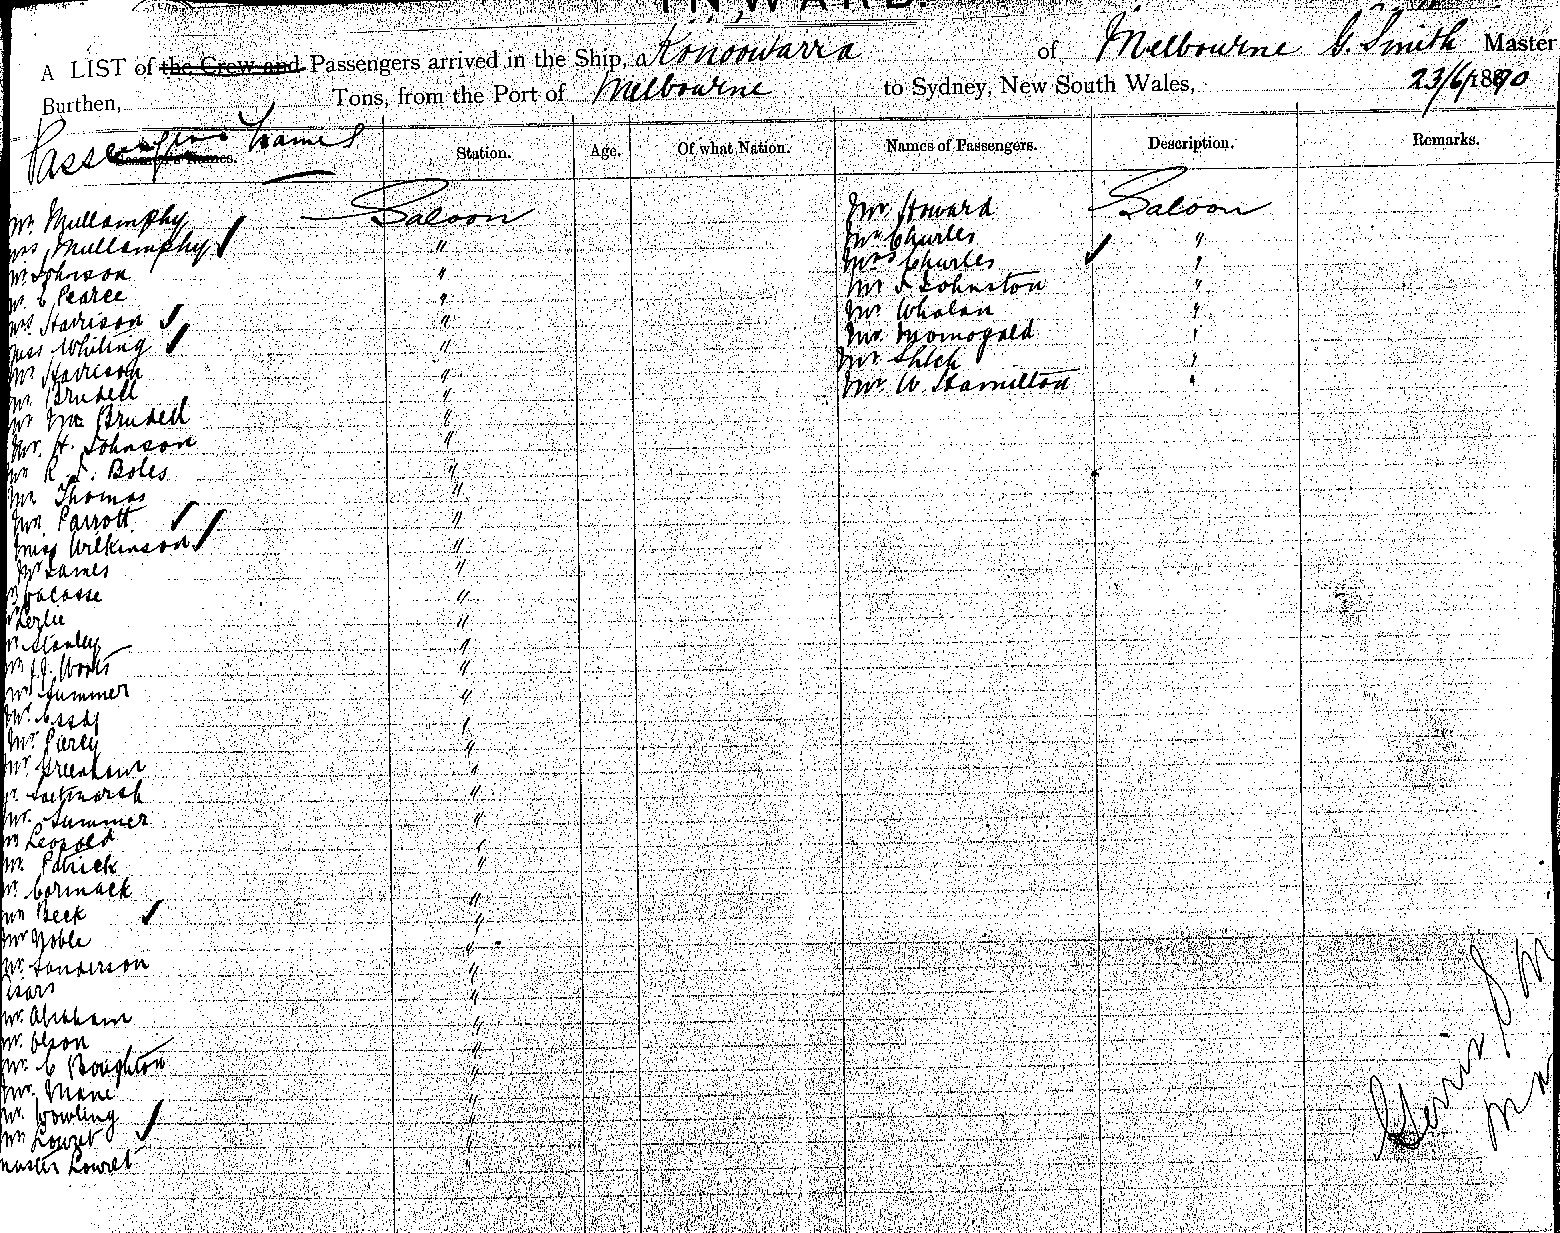 INWARD.
A LIST of the Crew and Passengers arrived in the Ship, Konoowarra of Melbourne C. Smith Master
Burthen, Tons, from the Port of Melbourne to Sydney, New South Wales, 23/6/1890
Passengers Names Station. Age. Of what Nation. Names of Passengers. Description. Remarks.
Mr Mullamphy Saloon
Mrs Mullamphy "
Mr Johnson "
Mr C Pearce "
Mrs Harrison "
Miss Whiting "
Mr Harrison "
Mr Brudell "
Mr Mc Brudell "
Mr. H. Johnson "
Mr R. J. Boles "
Mr Thomas "
Mrs Parrott "
Miss Wilkinson "
Mr James "
Lacosse "
Leslie "
Mr Stanley "
Mr J. J. Woods "
Mr Summer "
Mr "
Mr Piercy "
Mr Greenham "
Saltmarsh "
Mr. Summer "
Mr Leopold "
Mr Patrick "
Mr Cormack "
Mrs Beck "
Mr Noble "
Mr Sanderson "
Isars "
Mr. Abraham "
Mr. Olson "
Mr C Boughton "
Mr. Mane "
Mr. Cowling "
Mrs Lowret "
Master Lowret "
Mr Howard Saloon
Mr Charles "
Mrs Charles "
Mr J Johnston "
Mr Whalan "
Mr. "
Mr "
Mr W. Hamilton "